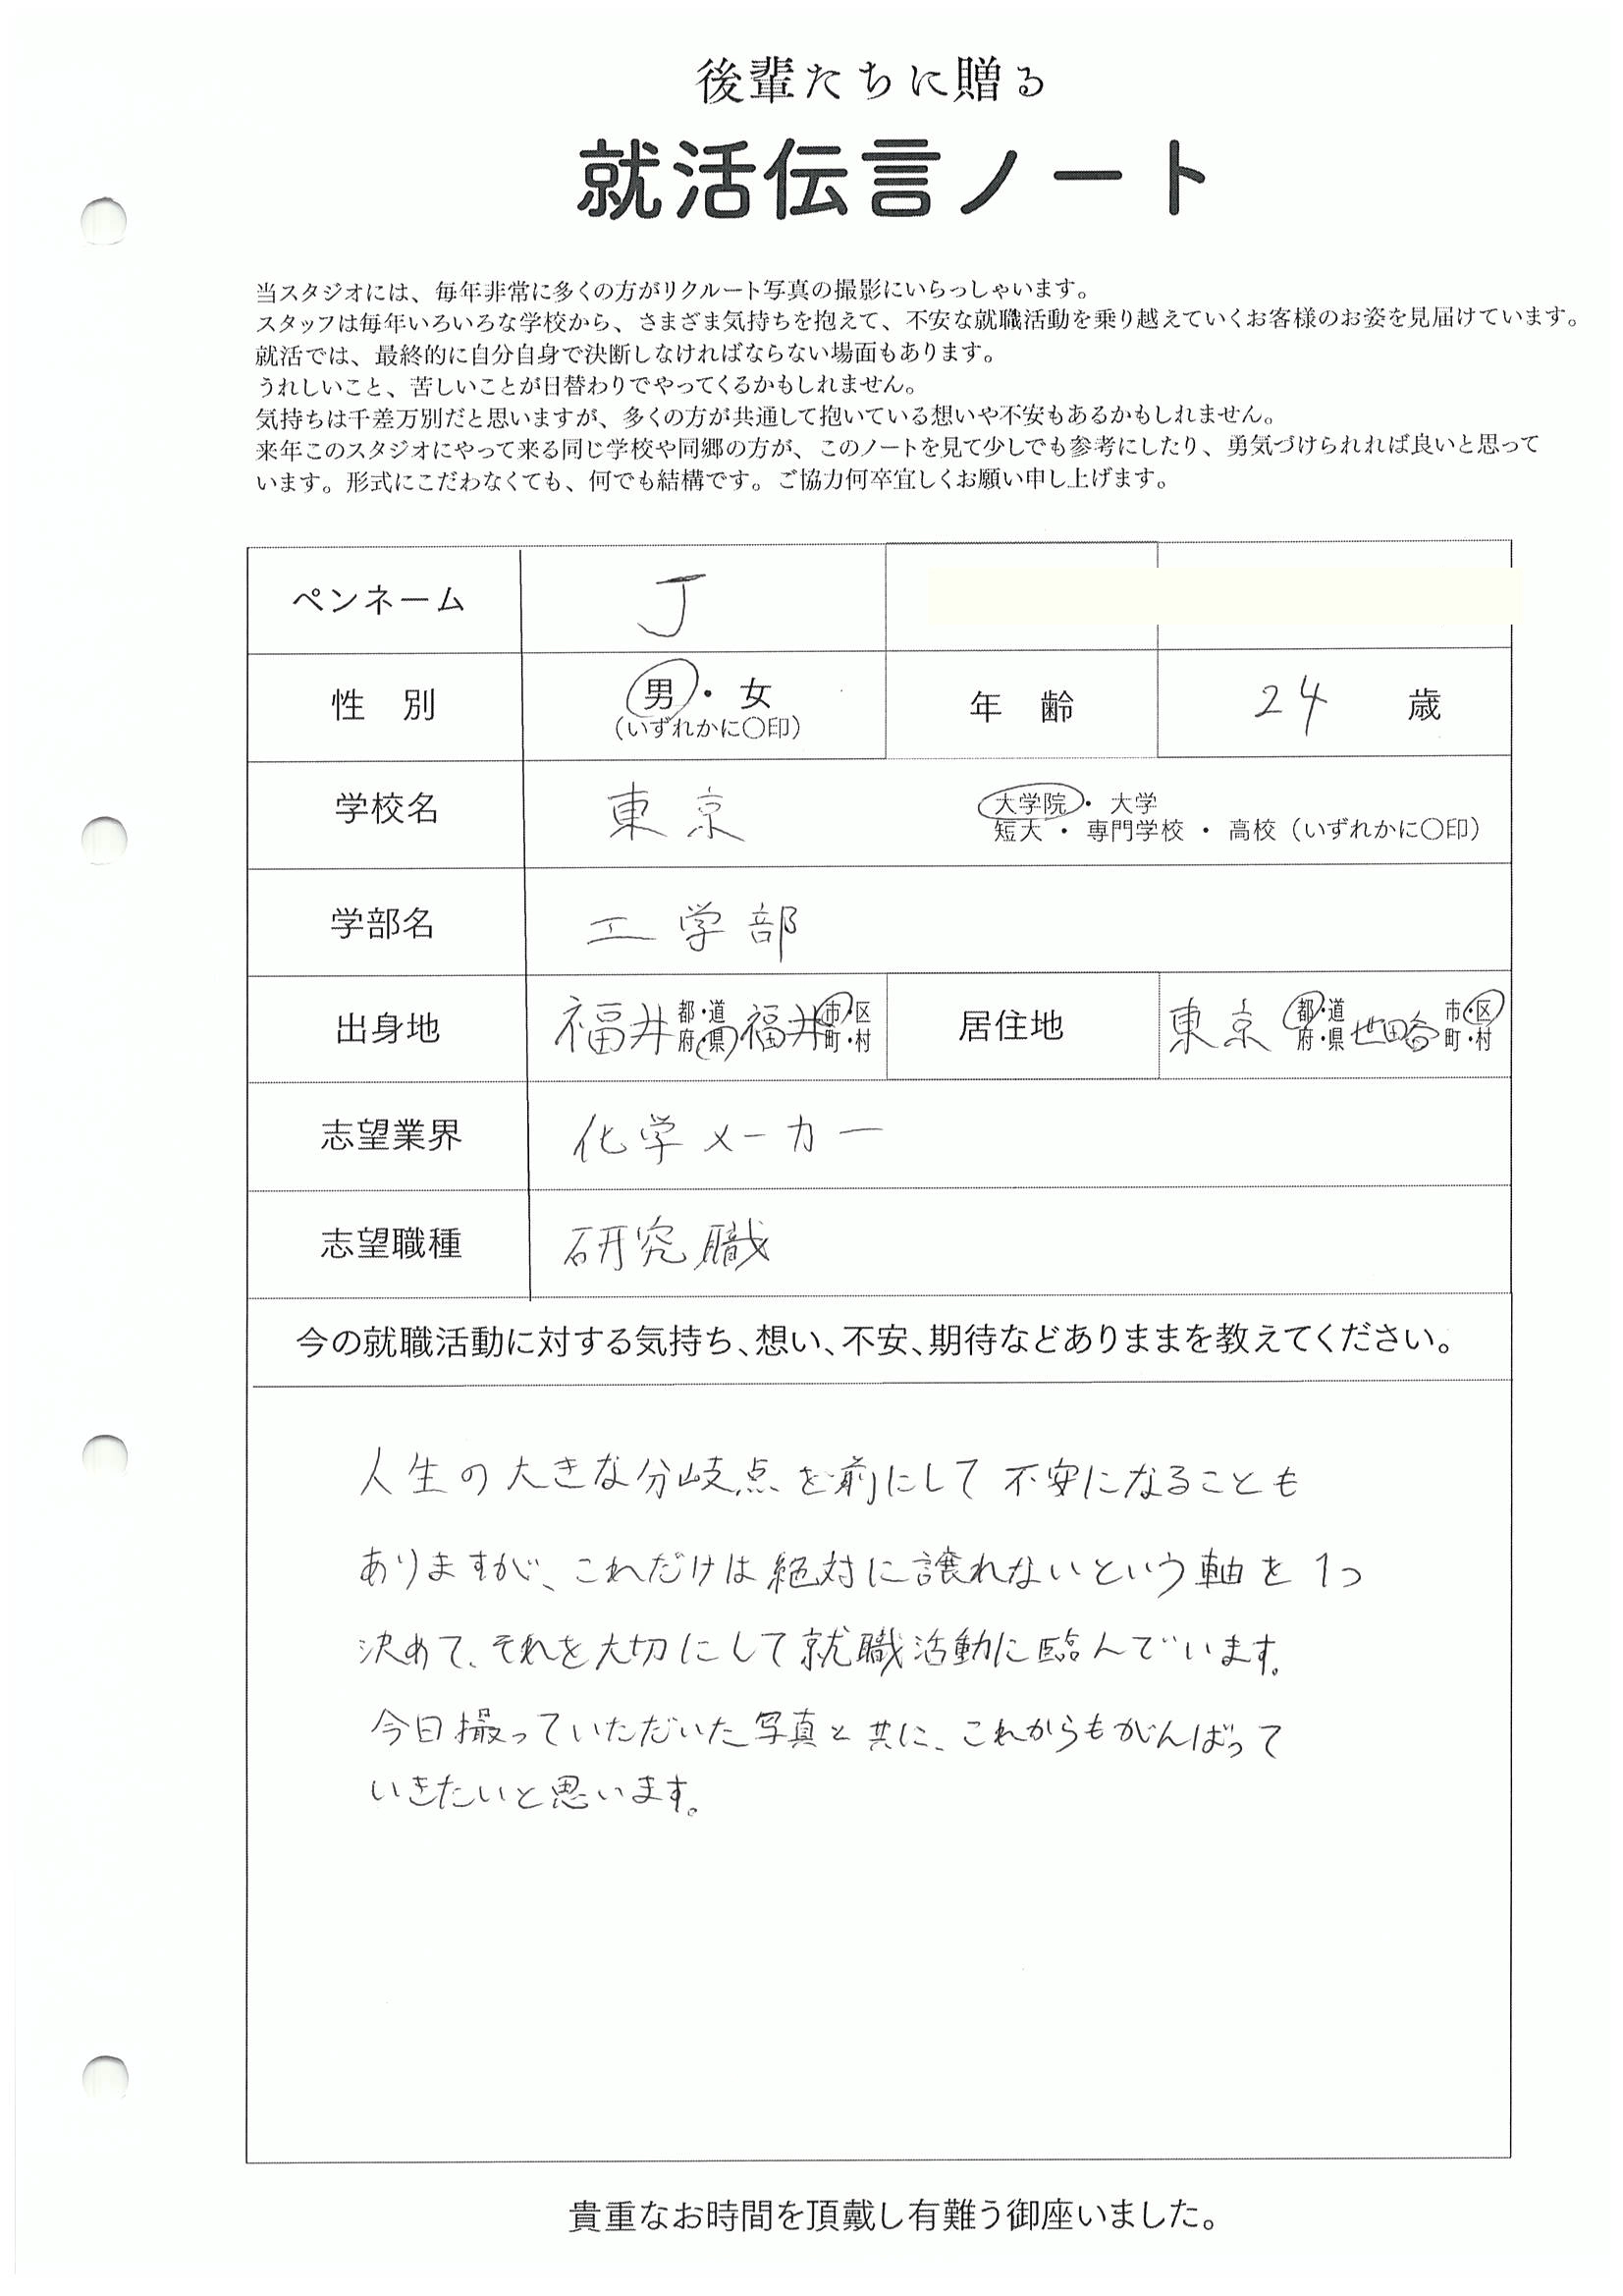 後輩たちに贈る
就活伝言ノート
当スタジオには、毎年非常に多くの方がリクルート写真の撮影にいらっしゃいます。
スタッフは毎年いろいろな学校から、さまざま気持ちを抱えて、不安な就職活動を乗り越えていくお客様のお姿を見届けています。
就活では、最終的に自分自身で決断しなければならない場面もあります。
うれしいこと、苦しいことが日替わりでやってくるかもしれません。
気持ちは千差万別だと思いますが、多くの方が共通して抱いている想いや不安もあるかもしれません。
来年このスタジオにやって来る同じ学校や同郷の方が、このノートを見て少しでも参考にしたり、勇気づけられれば良いと思って
います。形式にこだわなくても、何でも結構です。ご協力何卒宜しくお願い申し上げます。
ペンネーム J
性 別 男・女 年 齢 24 歳
(いずれかに〇印)
学校名 東京 大学院・大学
短大・専門学校・高校(いずれかに〇印)
学部名 工学部
出身地 福井 都・道 府・県 福井 市・区 町・村 居住地 東京 都・道 府・県 世田谷 市・区 町・村
志望業界 化学メーカー
志望職種 研究職
今の就職活動に対する気持ち、想い、不安、期待などありままを教えてください。
人生の大きな分岐点を前にして不安になることも
ありますが、これだけは絶対に譲れないという軸を1つ
決めて、それを大切にして就職活動に臨んでいます。
今日撮っていただいた写真と共に、これからもがんばって
いきたいと思います。
貴重なお時間を頂戴し有難う御座いました。